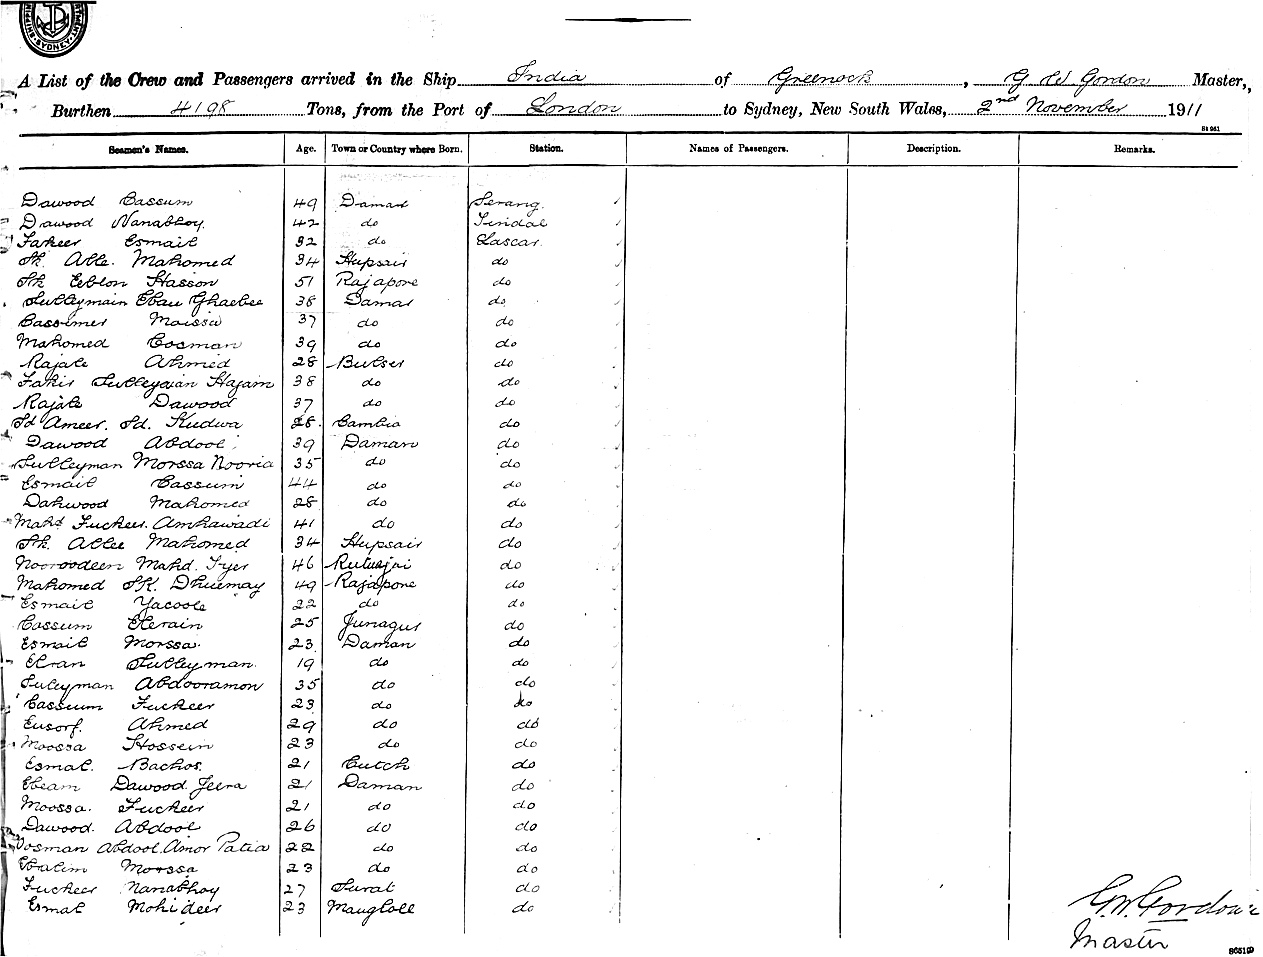 SYDNEY
A List of the Crew and Passengers arrived in the Ship India of Greenock, G W Gordon Master,
Burthen 4198 Tons, from the Port of London to Sydney, New South Wales, 2nd November 1911
Seamen's Names. Age. Town or Country where Born. Station. Names of Passengers. Description. Remarks.
Dawood Cassum 49 Daman Serang
Dawood Nanabhoy 42 do Tindal
Fakeer Esmail 32 do Lascar
Sk. Alle. Mahomed 34 Hupsair do
Sk Hasson 51 Rajapore do
Sulleymain Ebau 38 Daman do
37 do do
Mahomed Oosman 39 do do
Rajab Ahmed 28 Bulser do
Fakir Hajam 38 do do
Rajab Dawood 37 do do
Sd Ameer. Sd. Kudwa 28 Cambia do
Dawood Abdool 39 Daman do
Sulleyman Moossa Nooria 35 do do
Esmail Cassum 44 do do
Dahwood Mahomed 28 do do
Mahd Fucker. Amhawadi 41 do do
Sk. Allee Mahomed 34 Hupsair do
Nooroodeen Mahd. Iyer 46 do
Mahomed SK. Dhuemay 49 Rajapore do
Esmail Yacoob 22 do do
Cassum Ebrain 25 Junagur do
Esmail Moossa. 23 Daman do
Ebran Sulleyman. 19 do do
Suleyman Abdooramon 35 do do
Cassum Fuckeer 23 do do
Eusorf. Ahmed 29 do do
Moossa Hossein 23 do do
Esmal. Backos. 21 Cutch do
Ebeam Dawood Jeera 21 Daman do
Moossa. Fuckeer 21 do do
Dawood. Abdool 26 do do
Oosman Abdool. Amor Patia 22 do do
Ebalim Moossa 23 do do
Fuckeer Nanabhoy 27 Surat do
Esmal Mohideer 23 Manglole do
G.W. Gordon
Master